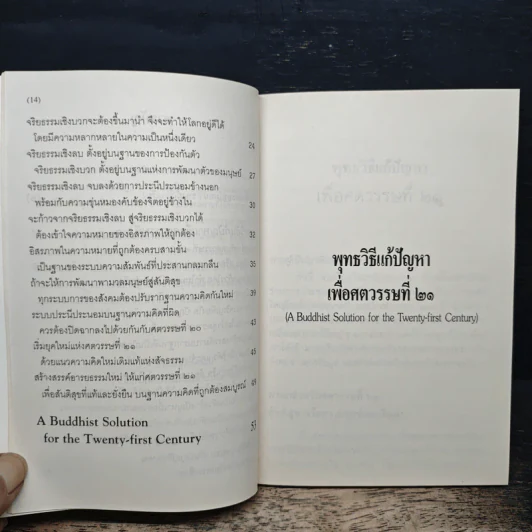 (14)
จริยธรรมเชิงบวกจะต้องขึ้นมานำ จึงจะทำให้โลกอยู่ดีได้
โดยมีความหลากหลายในความเป็นหนึ่งเดียว 24
จริยธรรมเชิงลบ ตั้งอยู่บนฐานของการป้องกันตัว
จริยธรรมเชิงบวก ตั้งอยู่บนฐานแห่งการพัฒนาตัวของมนุษย์ 27
จริยธรรมเชิงลบ จบลงด้วยการประนีประนอมข้างนอก
พร้อมกับความขุ่นหมองคับข้องจิตอยู่ข้างใน
จะก้าวจากจริยธรรมเชิงลบ สู่จริยธรรมเชิงบวกได้
ต้องเข้าใจความหมายของอิสรภาพให้ถูกต้อง
อิสรภาพในความหมายที่ถูกต้องครบสามขั้น
เป็นฐานของระบบความสัมพันธ์ที่ประสานกลมกลืน
ถ้าจะให้การพัฒนาพามวลมนุษย์สู่สันติสุข
ทุกระบบการของสังคมต้องปรับรากฐานความคิดกันใหม่
ระบบประนีประนอมบนฐานความคิดที่ผิด
ควรต้องปิดฉากลงไปด้วยกันกับศตวรรษที่ ๒๐
เริ่มยุคใหม่แห่งศตวรรษที่ ๒๑
ด้วยแนวความคิดใหม่เติมแท้แห่งสัจธรรม
สร้างสรรค์อารยธรรมใหม่ ให้แก่ศตวรรษที่ ๒๑
เพื่อสันติสุขที่แท้และยั่งยืน บนฐานความคิดที่ถูกต้องสมบูรณ์
A Buddhist Solution
for the Twenty-first Century 53
พุทธวิธีแก้ปัญหา
เพื่อศตวรรษที่ ๒๑
(A Buddhist Solution for the Twenty-first Century)